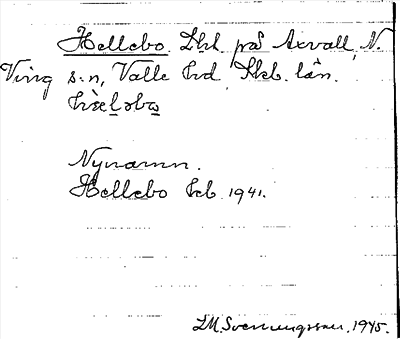 Hellebo. Lht. på Axvall, N.
Ving s:n, Valle hd, Skb. län.
Nynamn.
Hellebo kb 1941.
L.M. Svenungsson, 1945.